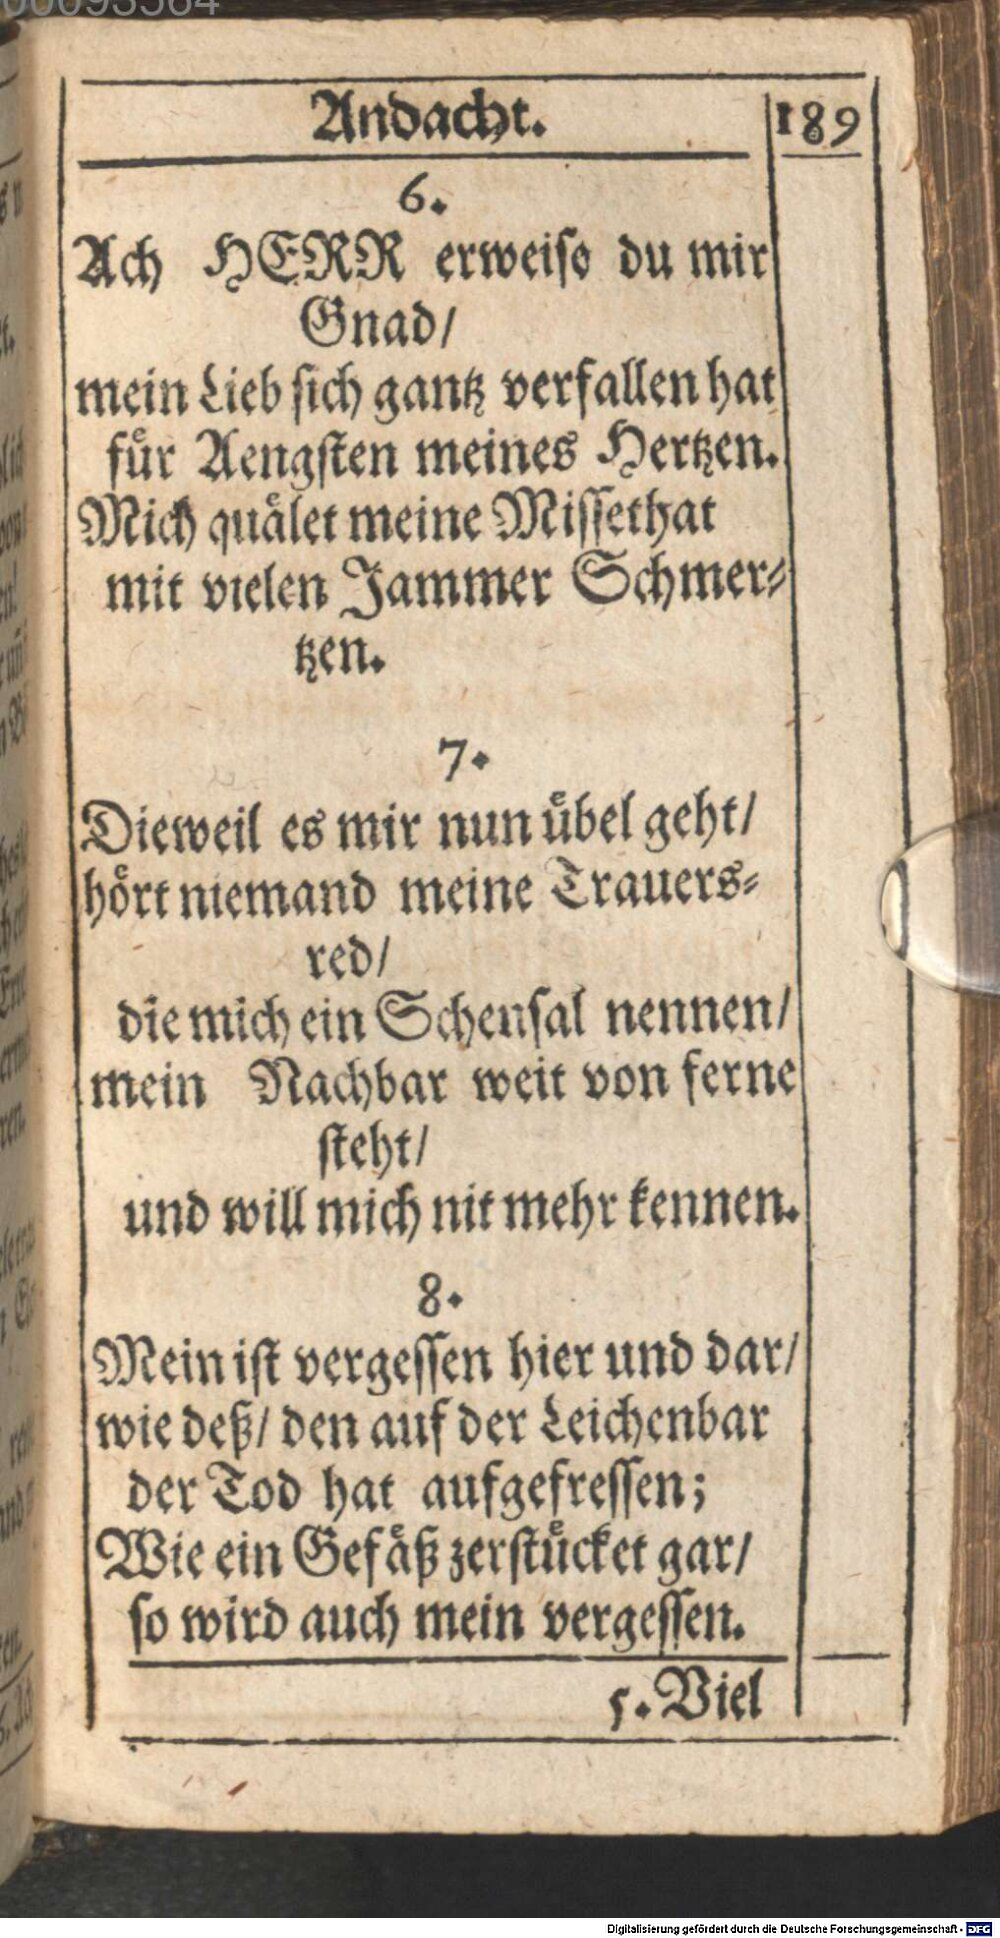 Andacht. 189
6.
Ach HERR erweise du mir
Gnad/
mein Lieb sich gantz verfallen hat
fuͤr Aengsten meines Hertzen.
Mich quaͤlet meine Missethat
mit vielen Jammer Schmer⸗
tzen.
7.
Dieweil es mir nun uͤbel geht/
hoͤrt niemand meine Trauers⸗
red/
die mich ein Schensal nennen/
mein Nachbar weit von ferne
steht/
und will mich nit mehr kennen.
8.
Mein ist vergessen hier und dar/
wie deß/ den auf der Leichenbar
der Tod hat aufgefressen;
Wie ein Gefaͤß zerstuͤcket gar/
so wird auch mein vergessen.
5. Viel
Digitalisierung gefördert durch die Deutsche Forschungsgemeinschaft - DFG